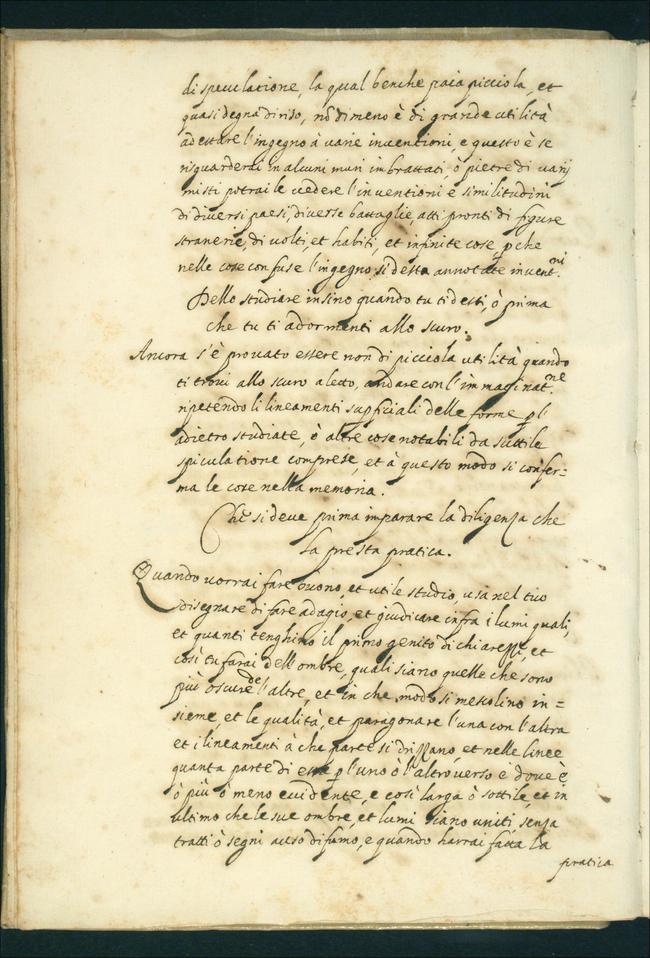 di speculatione, la qual benche paia picciola, et
quasi degna di riso, nõdimeno è di grande utilità
ad estare l'ingegno à varie inventioni, e questo è se
risguarderai in alcuni muri imbrattati ò pietre di varij
misti potrai le vedere l'inventioni e similitudini
di diversi paesi, diverse battaglie, atti pronti di figure
stranerie, di volti, et habiti, et infinite cose, p che
nelle cose confuse l'ingegno si desta annotate invent.ni
Dello studiare insino quando tu ti desti, ò prima
che tu ti adormenti allo scuro.
Ancora s'è provato essere non di picciola utilità quando
ti trovi allo scuro a letto, andare con l'immaginat.ne
ripetendo li lineamenti supficiali delle forme p l'
adietro studiate, ò altre cose notabili da suttile
spiculatione comprese, et à questo modo si confer=
ma le cose nella memoria.
Chẽ si deve prima imparare la diligenza che
la presta pratica.
Quando vorrai fare buono, et utile studio, usa nel tuo
disegnare di fare adagio, et giudicare infra i lumi quali,
et quanti tenghino il primo genito di chiarezza, et
così tu farai dell'ombre, quali siano quelle che sono
più oscure de l'altre, et in che modo si mescolino in=
sieme, et le qualità, et paragonare l'una con l'altra
et i lineamenti à che parte si drizzano, et nelle linee
quanta parte di essa p l'uno ò l'altro verso e dove è
ò più ò meno evidente, e così larga ò sottile, et in
ultimo che le sue ombre, et lumi siano uniti senza
tratti ò segni auso di fumo, e quando harrai fatta la
pratica